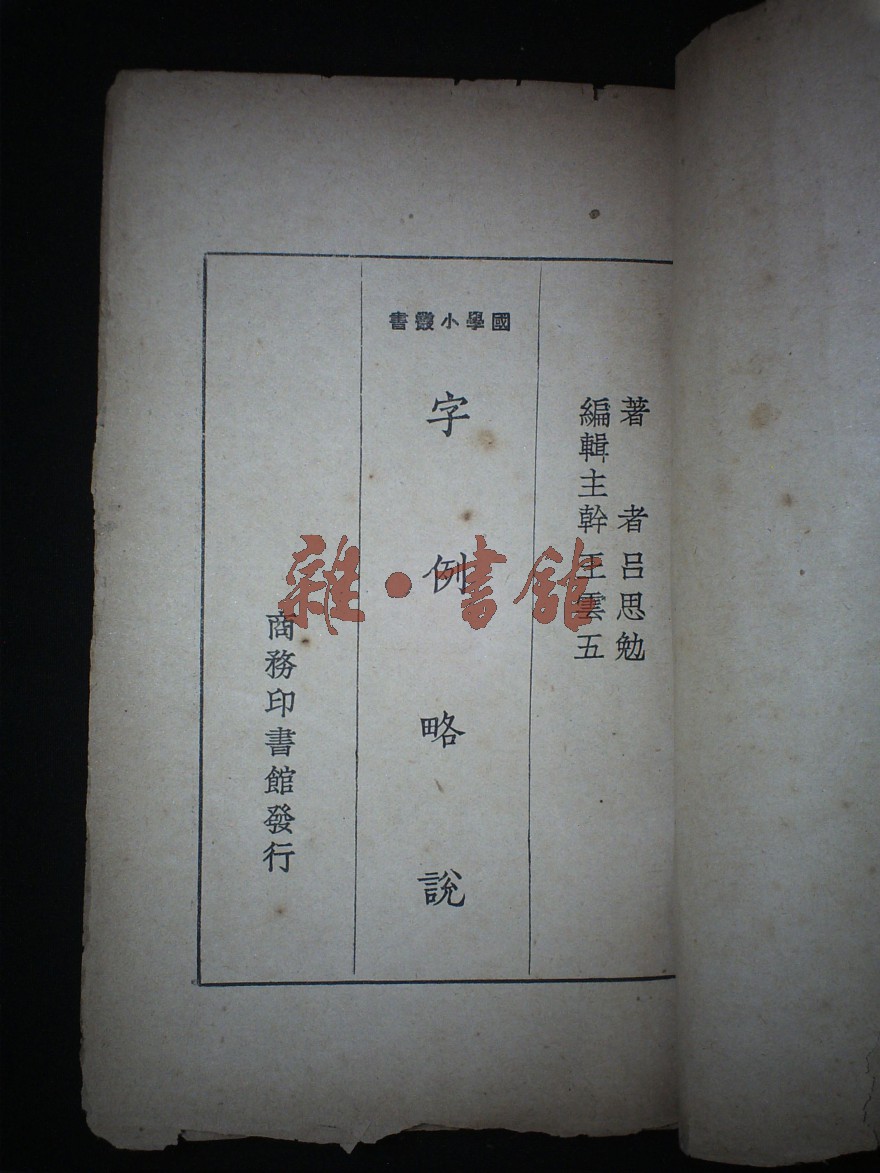 著者 呂思勉
編輯主幹 王雲五
國學小叢書
字例略說
商務印書館發行
雜·書館